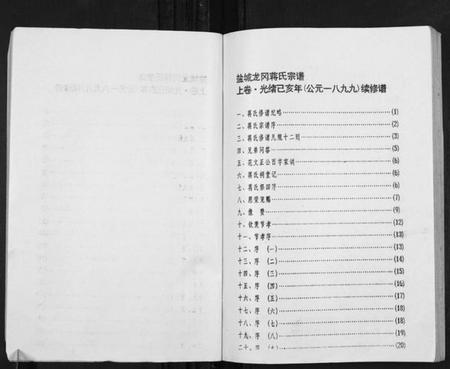 盐城龙冈蒋氏宗谱
上卷·光绪己亥年(公元一八九九)续修谱
一、蒋氏修谱纪略 (1)
二、蒋氏宗谱序 (2)
三、蒋氏修谱凡规十二则 (3)
四、兄弟问答 (5)
五、范文正公百字家训 (6)
六、蒋氏祠堂记 (6)
七、蒋氏祭田序 (6)
八、恩荣宠赐 (7)
九、像赞 (9)
十、钦奖节孝 (12)
十一、节孝序 (13)
十二、序(一) (13)
十三、序(二) (15)
十四、序(三) (15)
十五、序(四) (16)
十六、序(五) (17)
十七、序(六) (18)
十八、序(七) (18)
十九、序(八) (19)
二十、序 (20)